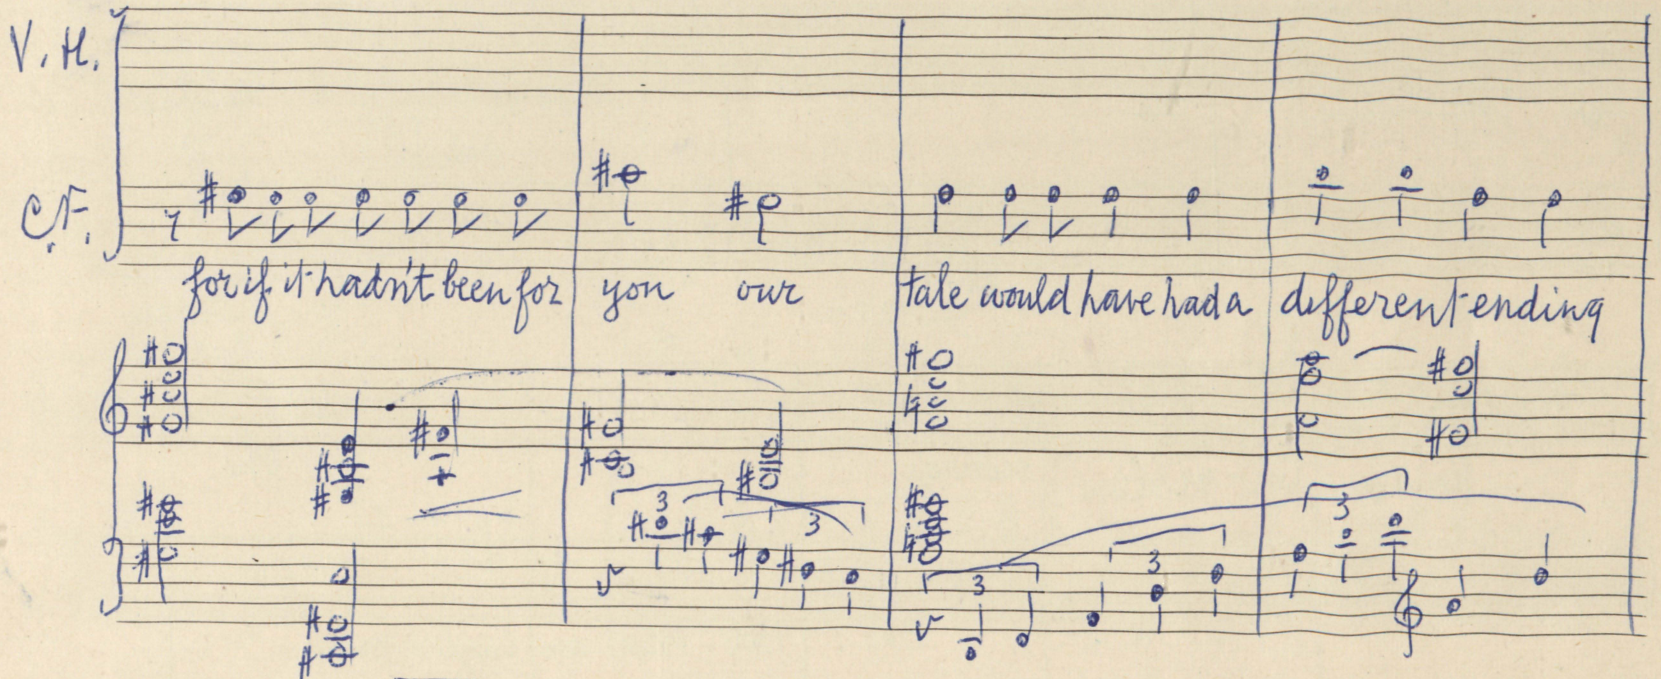 V. H.
C.F.
for if it hadn't been for you our tale would have had a different ending
3 3 3 3 3